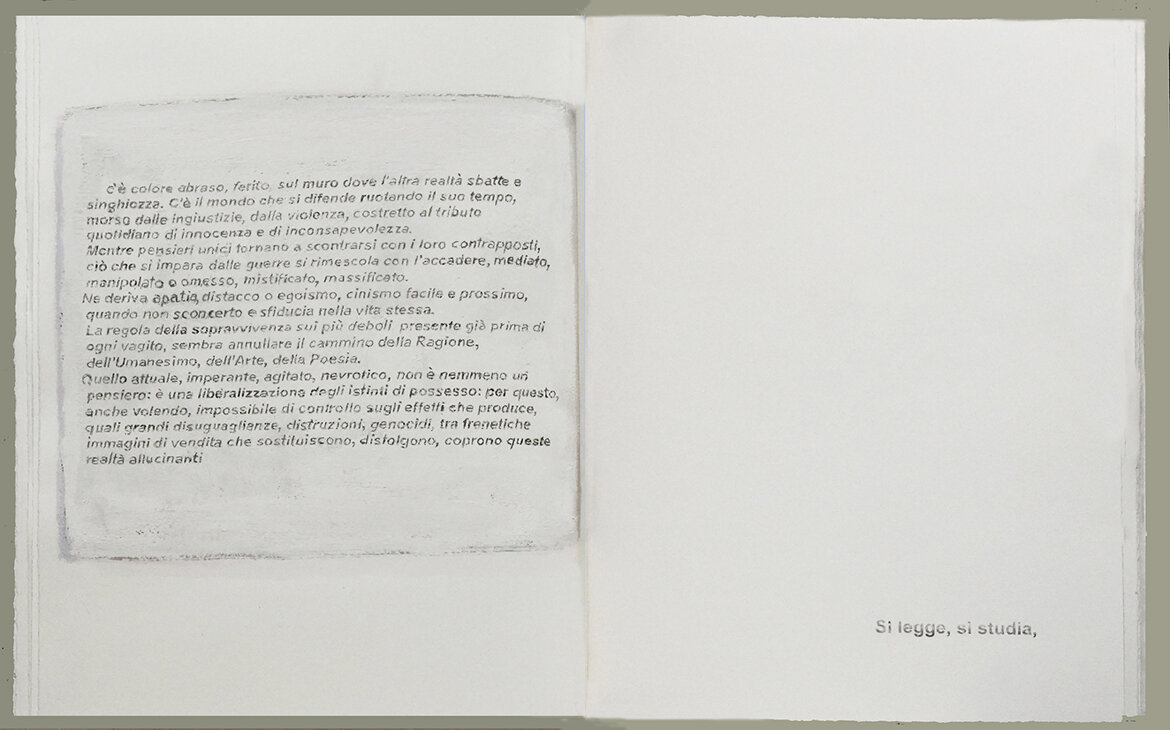 c'è colore abraso, ferito, sul muro dove l'altra realtà sbatte e
singhiozza. C'è il mondo che si difende ruotando il suo tempo,
morso dalle ingiustizie, dalla violenza, costretto al tributo
quotidiano di innocenza e di inconsapevolezza.
Mentre pensieri unici tornano a scontrarsi con i loro contrapposti,
ciò che si impara dalle guerre si rimescola con l'accadere, mediato,
manipolato o omesso, mistificato, massificato.
Ne deriva apatia, distacco o egoismo, cinismo facile e prossimo,
quando non sconcerto e sfiducia nella vita stessa.
La regola della sopravvivenza sui più deboli presente già prima di
ogni vagito, sembra annullare il cammino della Ragione,
dell'Umanesimo, dell'Arte, della Poesia.
Quello attuale, imperante, agitato, nevrotico, non è nemmeno un
pensiero: è una liberalizzazione degli istinti di possesso: per questo,
anche volendo, impossibile di controllo sugli effetti che produce,
quali grandi disuguaglianze, distruzioni, genocidi, tra frenetiche
immagini di vendita che sostituiscono, distolgono, coprono queste
realtà allucinanti
Si legge, si studia,